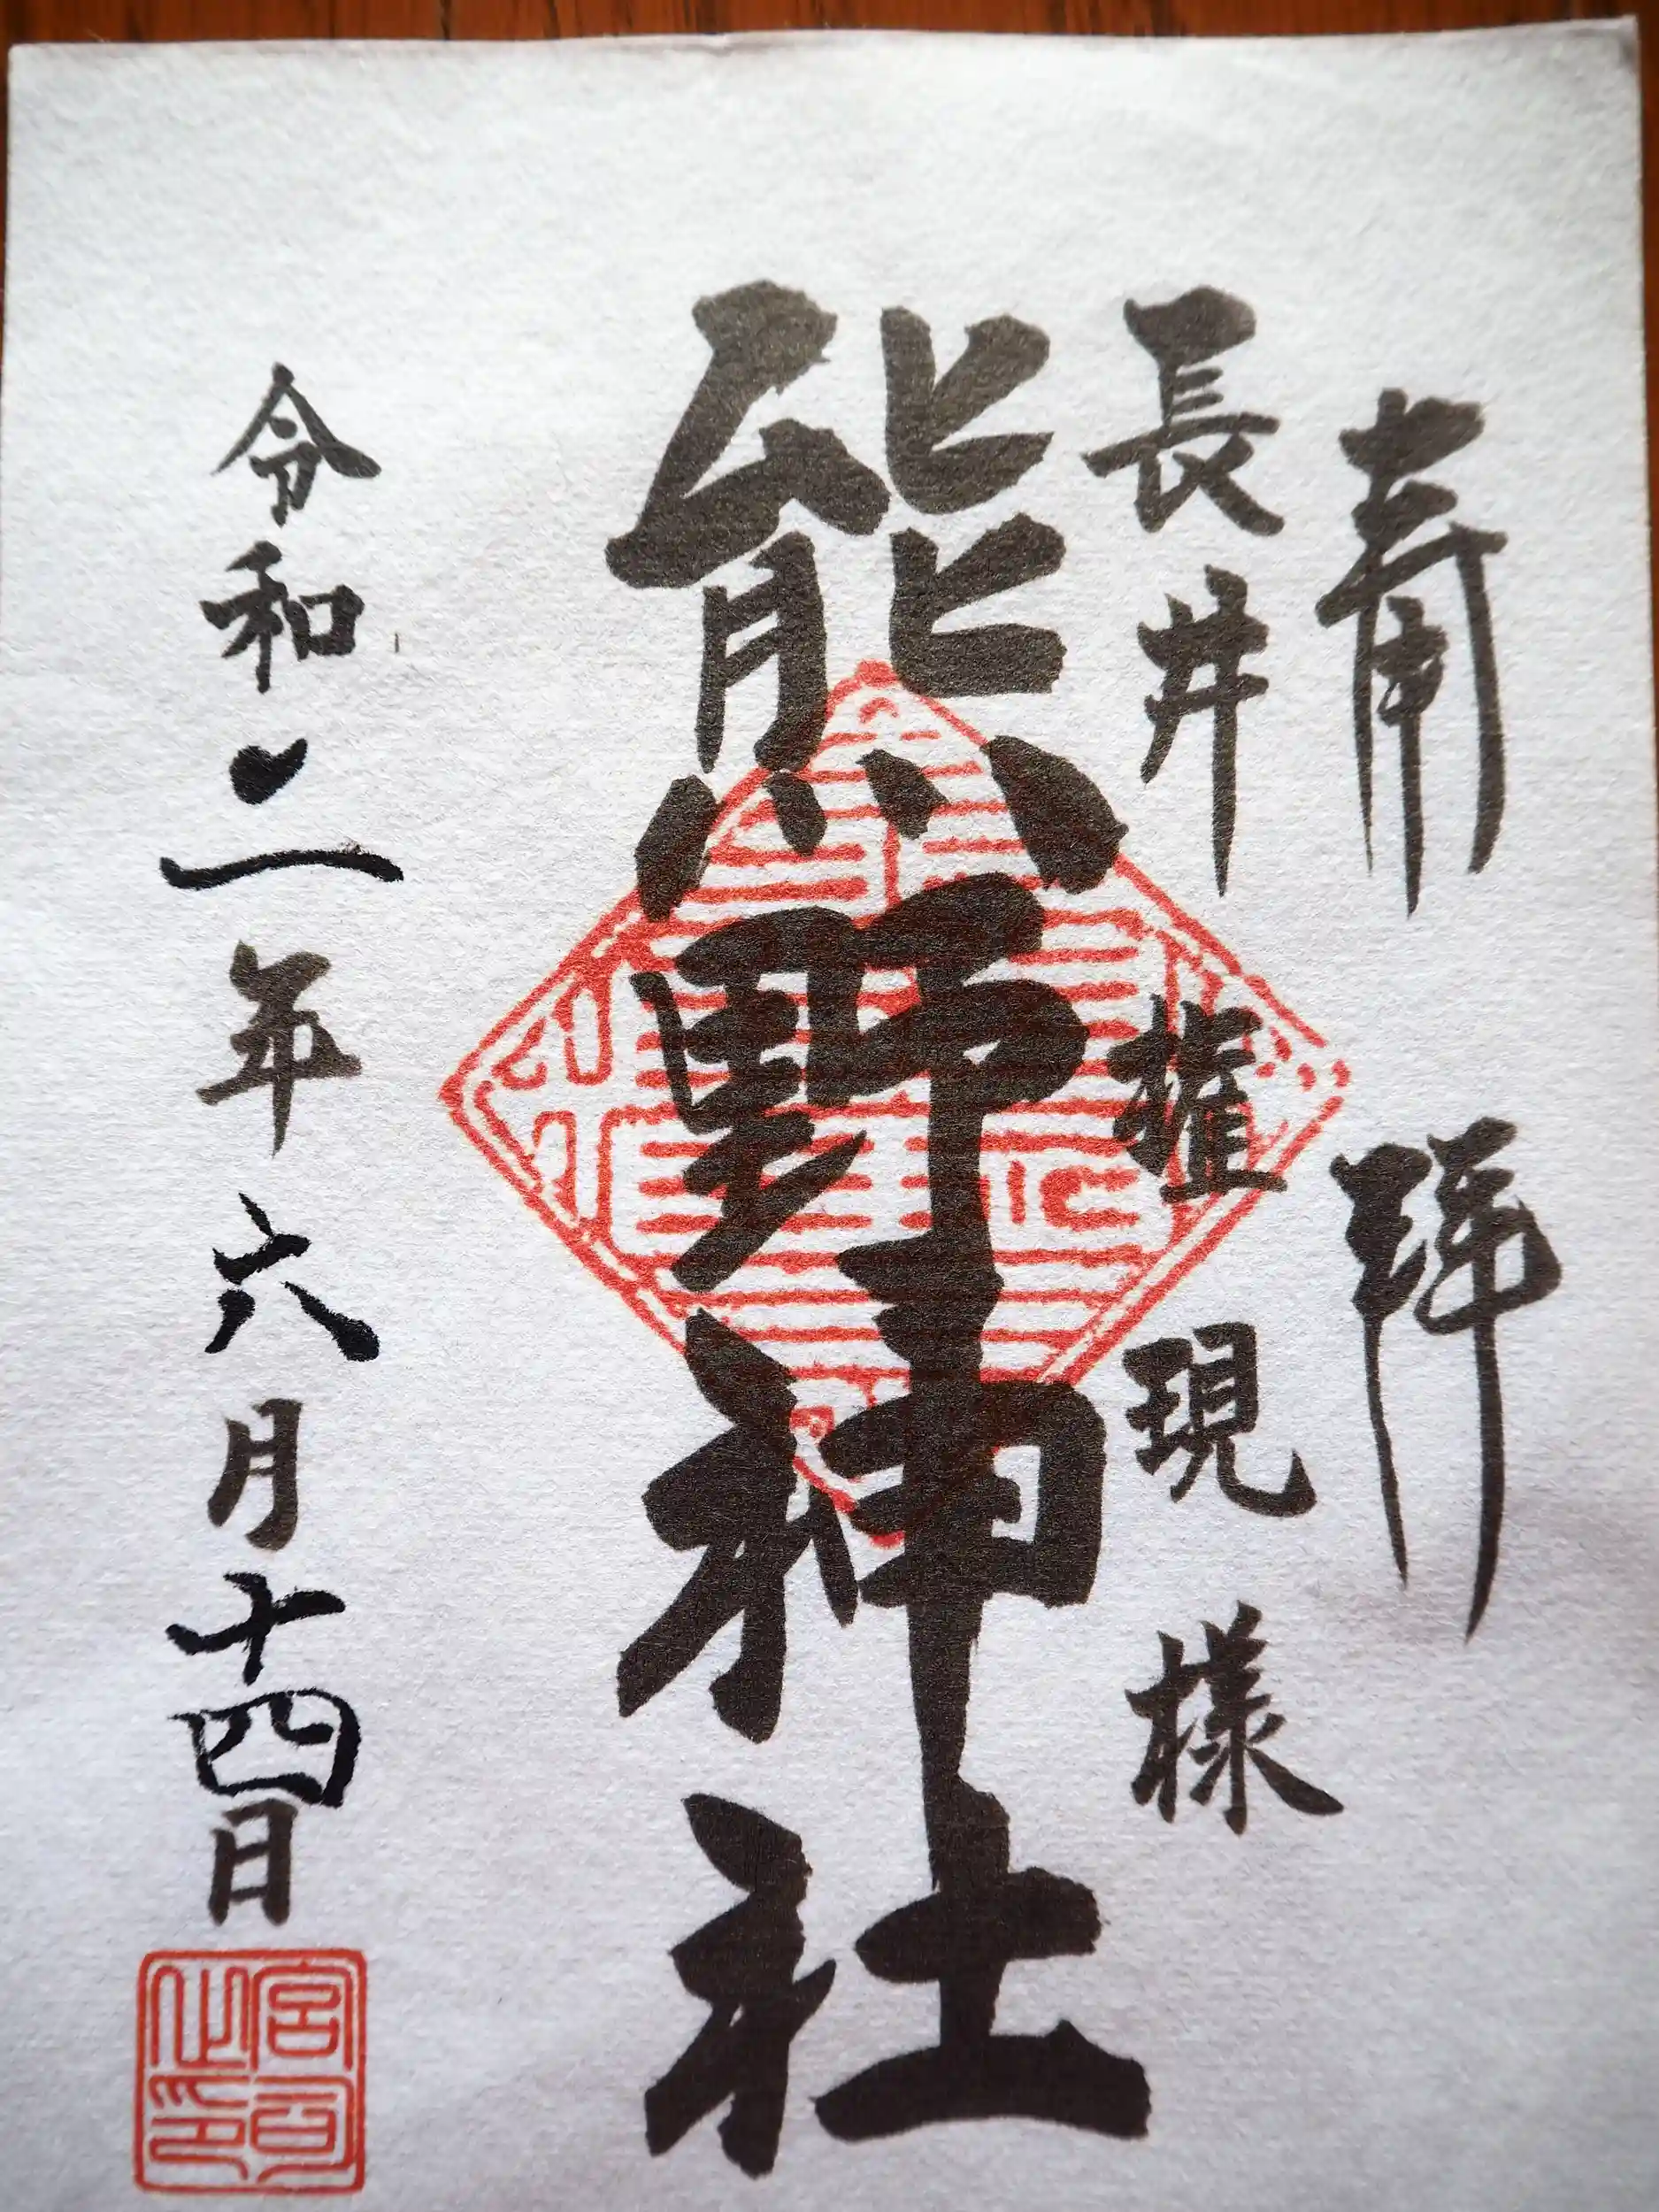 奉拝
長井権現様
熊野神社
令和二年六月十四日
宮司之印